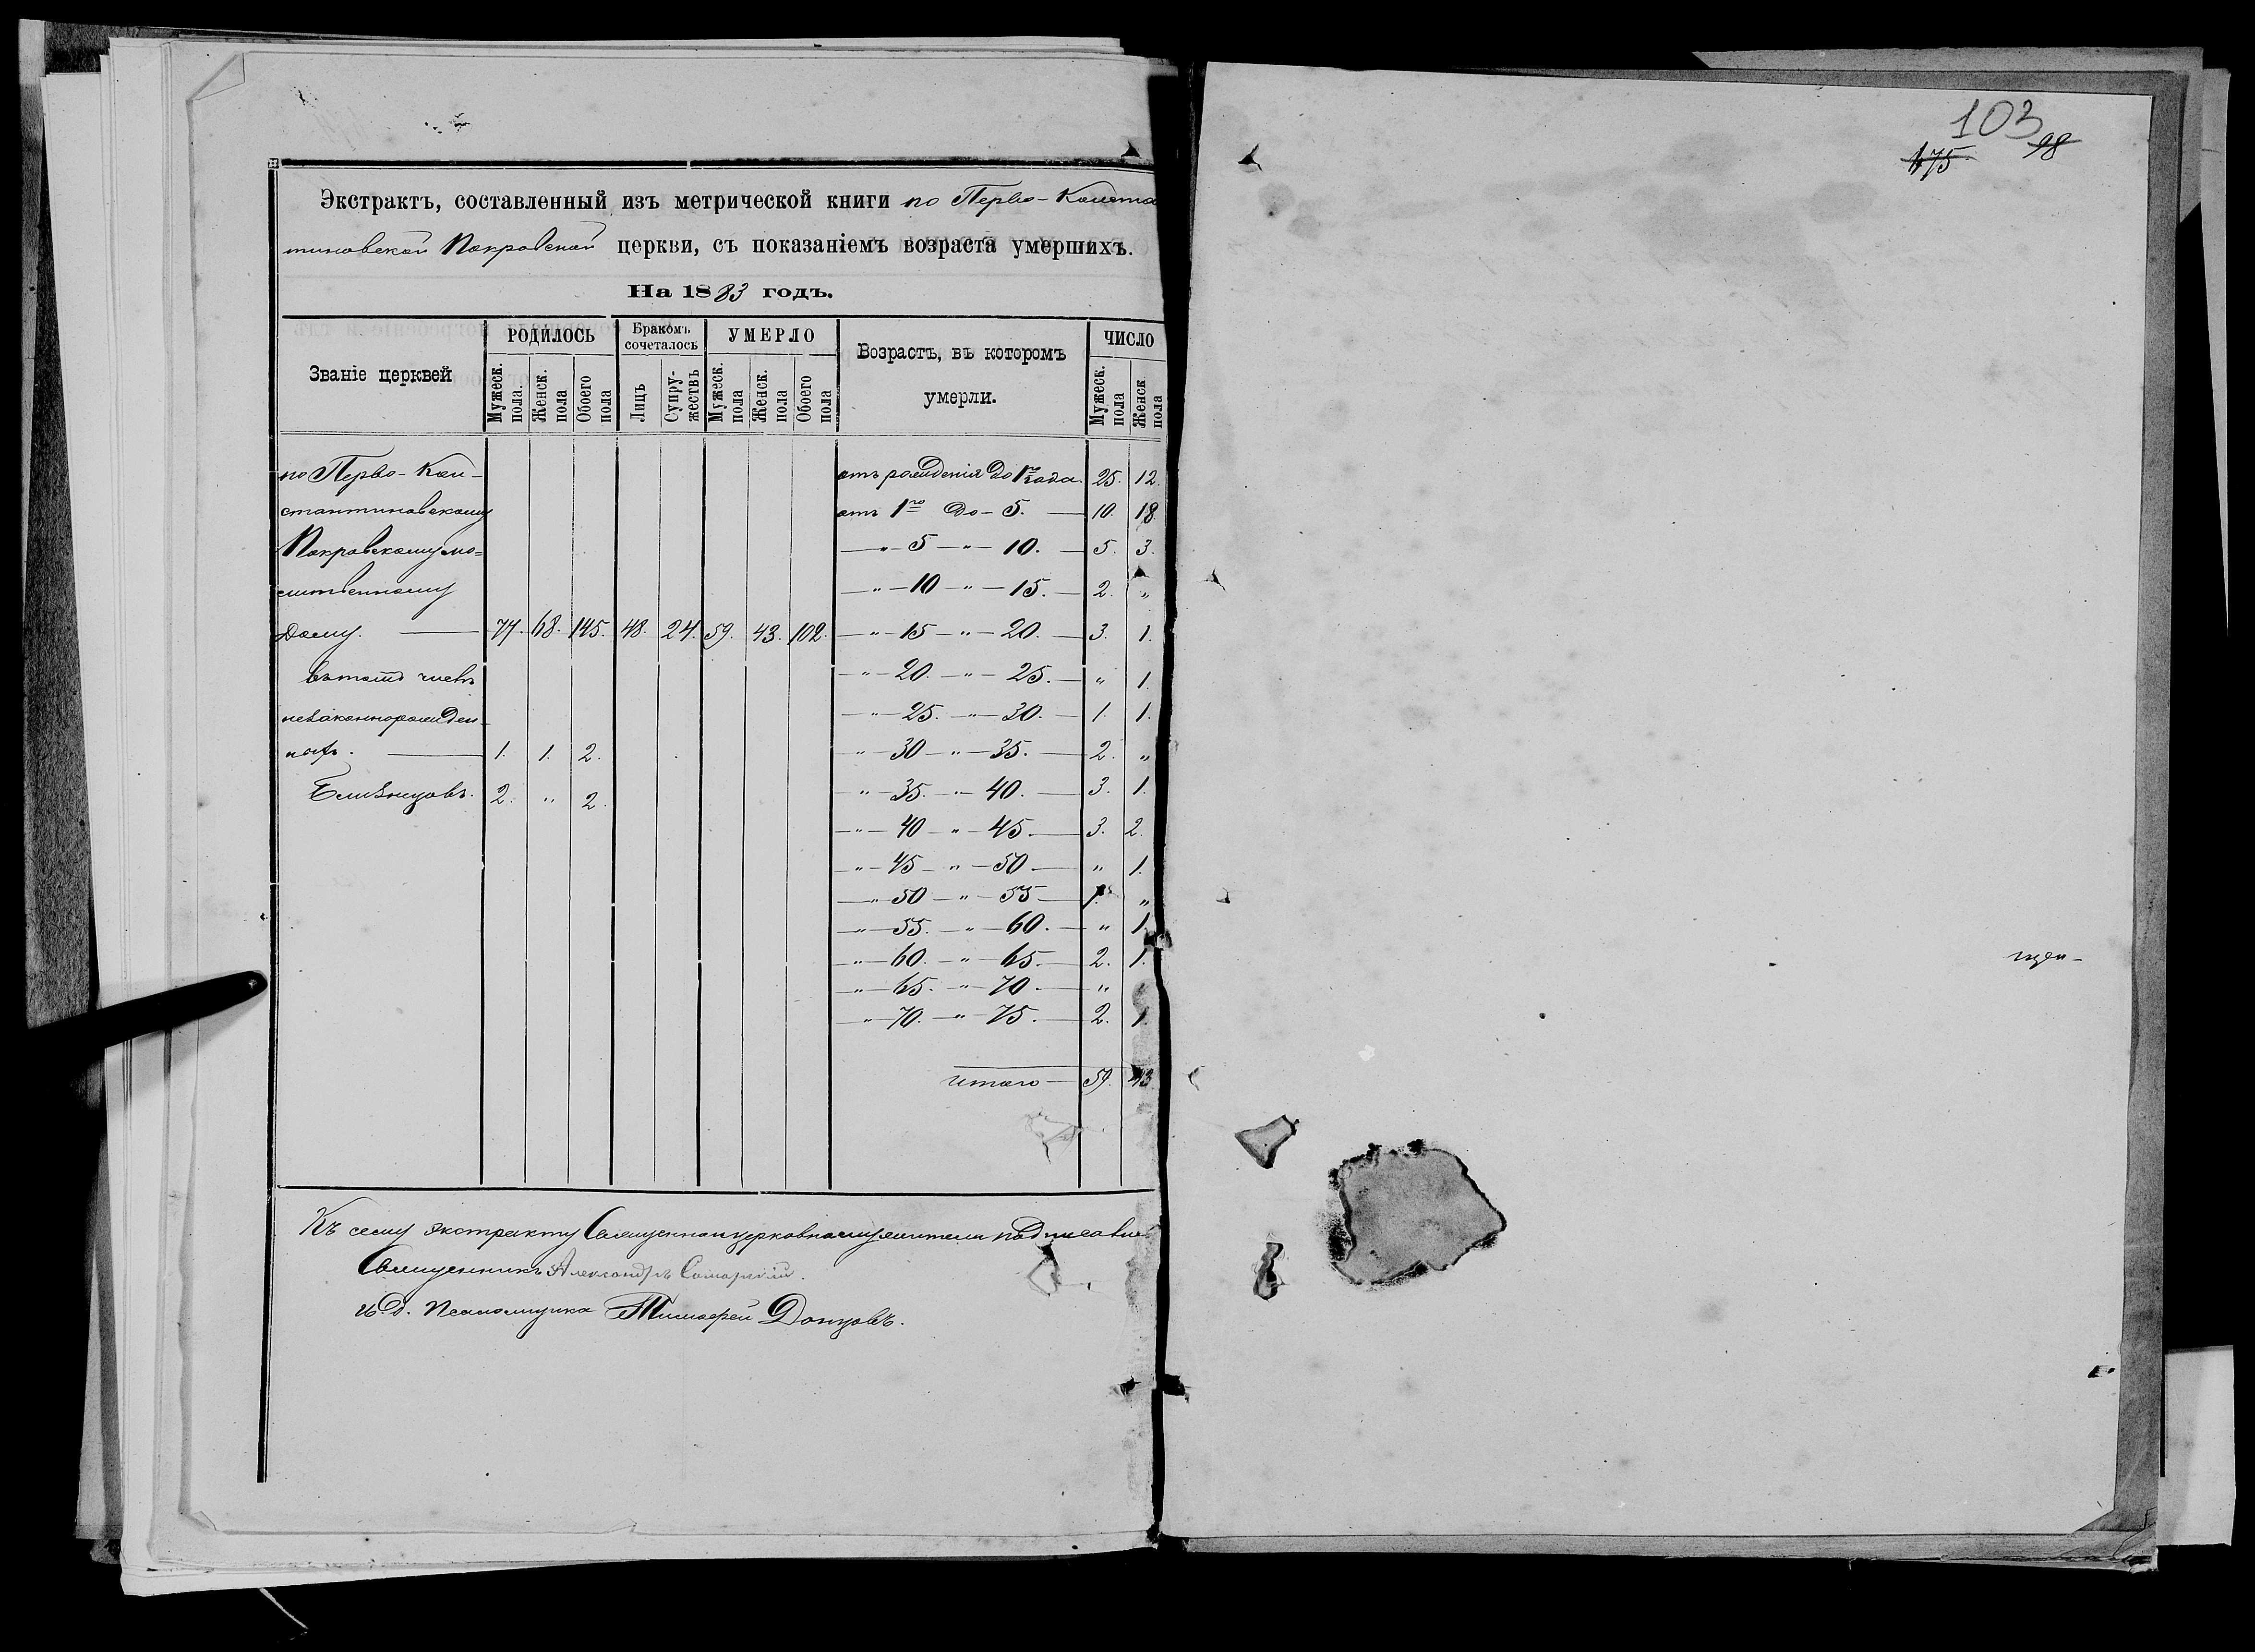 103
175 98
Экстрактъ, составленный изъ метрической книги по Перво-Конста
тиновской Покровской церкви, съ показаніемъ возраста умершихъ.
На 1883 годъ.
Званіе церквей
РОДИЛОСЬ
Мужеск. пола.
Женск. пола
Обоего пола
Бракомъ сочеталось
Лицъ
Супружествъ
УМЕРЛО
Мужеск. пола
Женск. пола
Обоего пола
Возрастъ, въ которомъ
умерли.
ЧИСЛО
Мужеск. пола
Женск пола
по Перво-Кон- отъ рожденія до 1го года. 25. 12.
стантиновскому отъ 1го до - 5. — 10. 18.
Покровскому мо= — " — 5 — " — 10. — 5. 3.
литвенному — " — 10 — " — 15. — 2. "
дому. — 77. 68. 145. 48. 24. 59. 43. 102. — " — 15 — " — 20. — 3. 1.
въ томъ числѣ — " — 20. — " — 25. — " 1.
незаконнорожден- — " — 25. — " — 30. — 1. 1.
ныхъ. — 1. 1. 2. " — 30 — " — 35. — 2. "
Близнецовъ. 2. " 2. " — 35. — " — 40. — 3. 1.
— " — 40 — " — 45. — 3. 2.
— " — 45 — " — 50 — " 1.
— " — 50 — " — 55 — 1. "
— " — 55. — " — 60. — " 1.
— " — 60. — " — 65. — 2. 1.
— " — 65. — " — 70. — "
— " — 70. — " — 75. — 2. 1.
итого — 59. 43
Къ сему экстракту Священноцерковнослужители подписались
Священникъ Александръ
И. д. Псаломщика Тимофей Донцовъ.